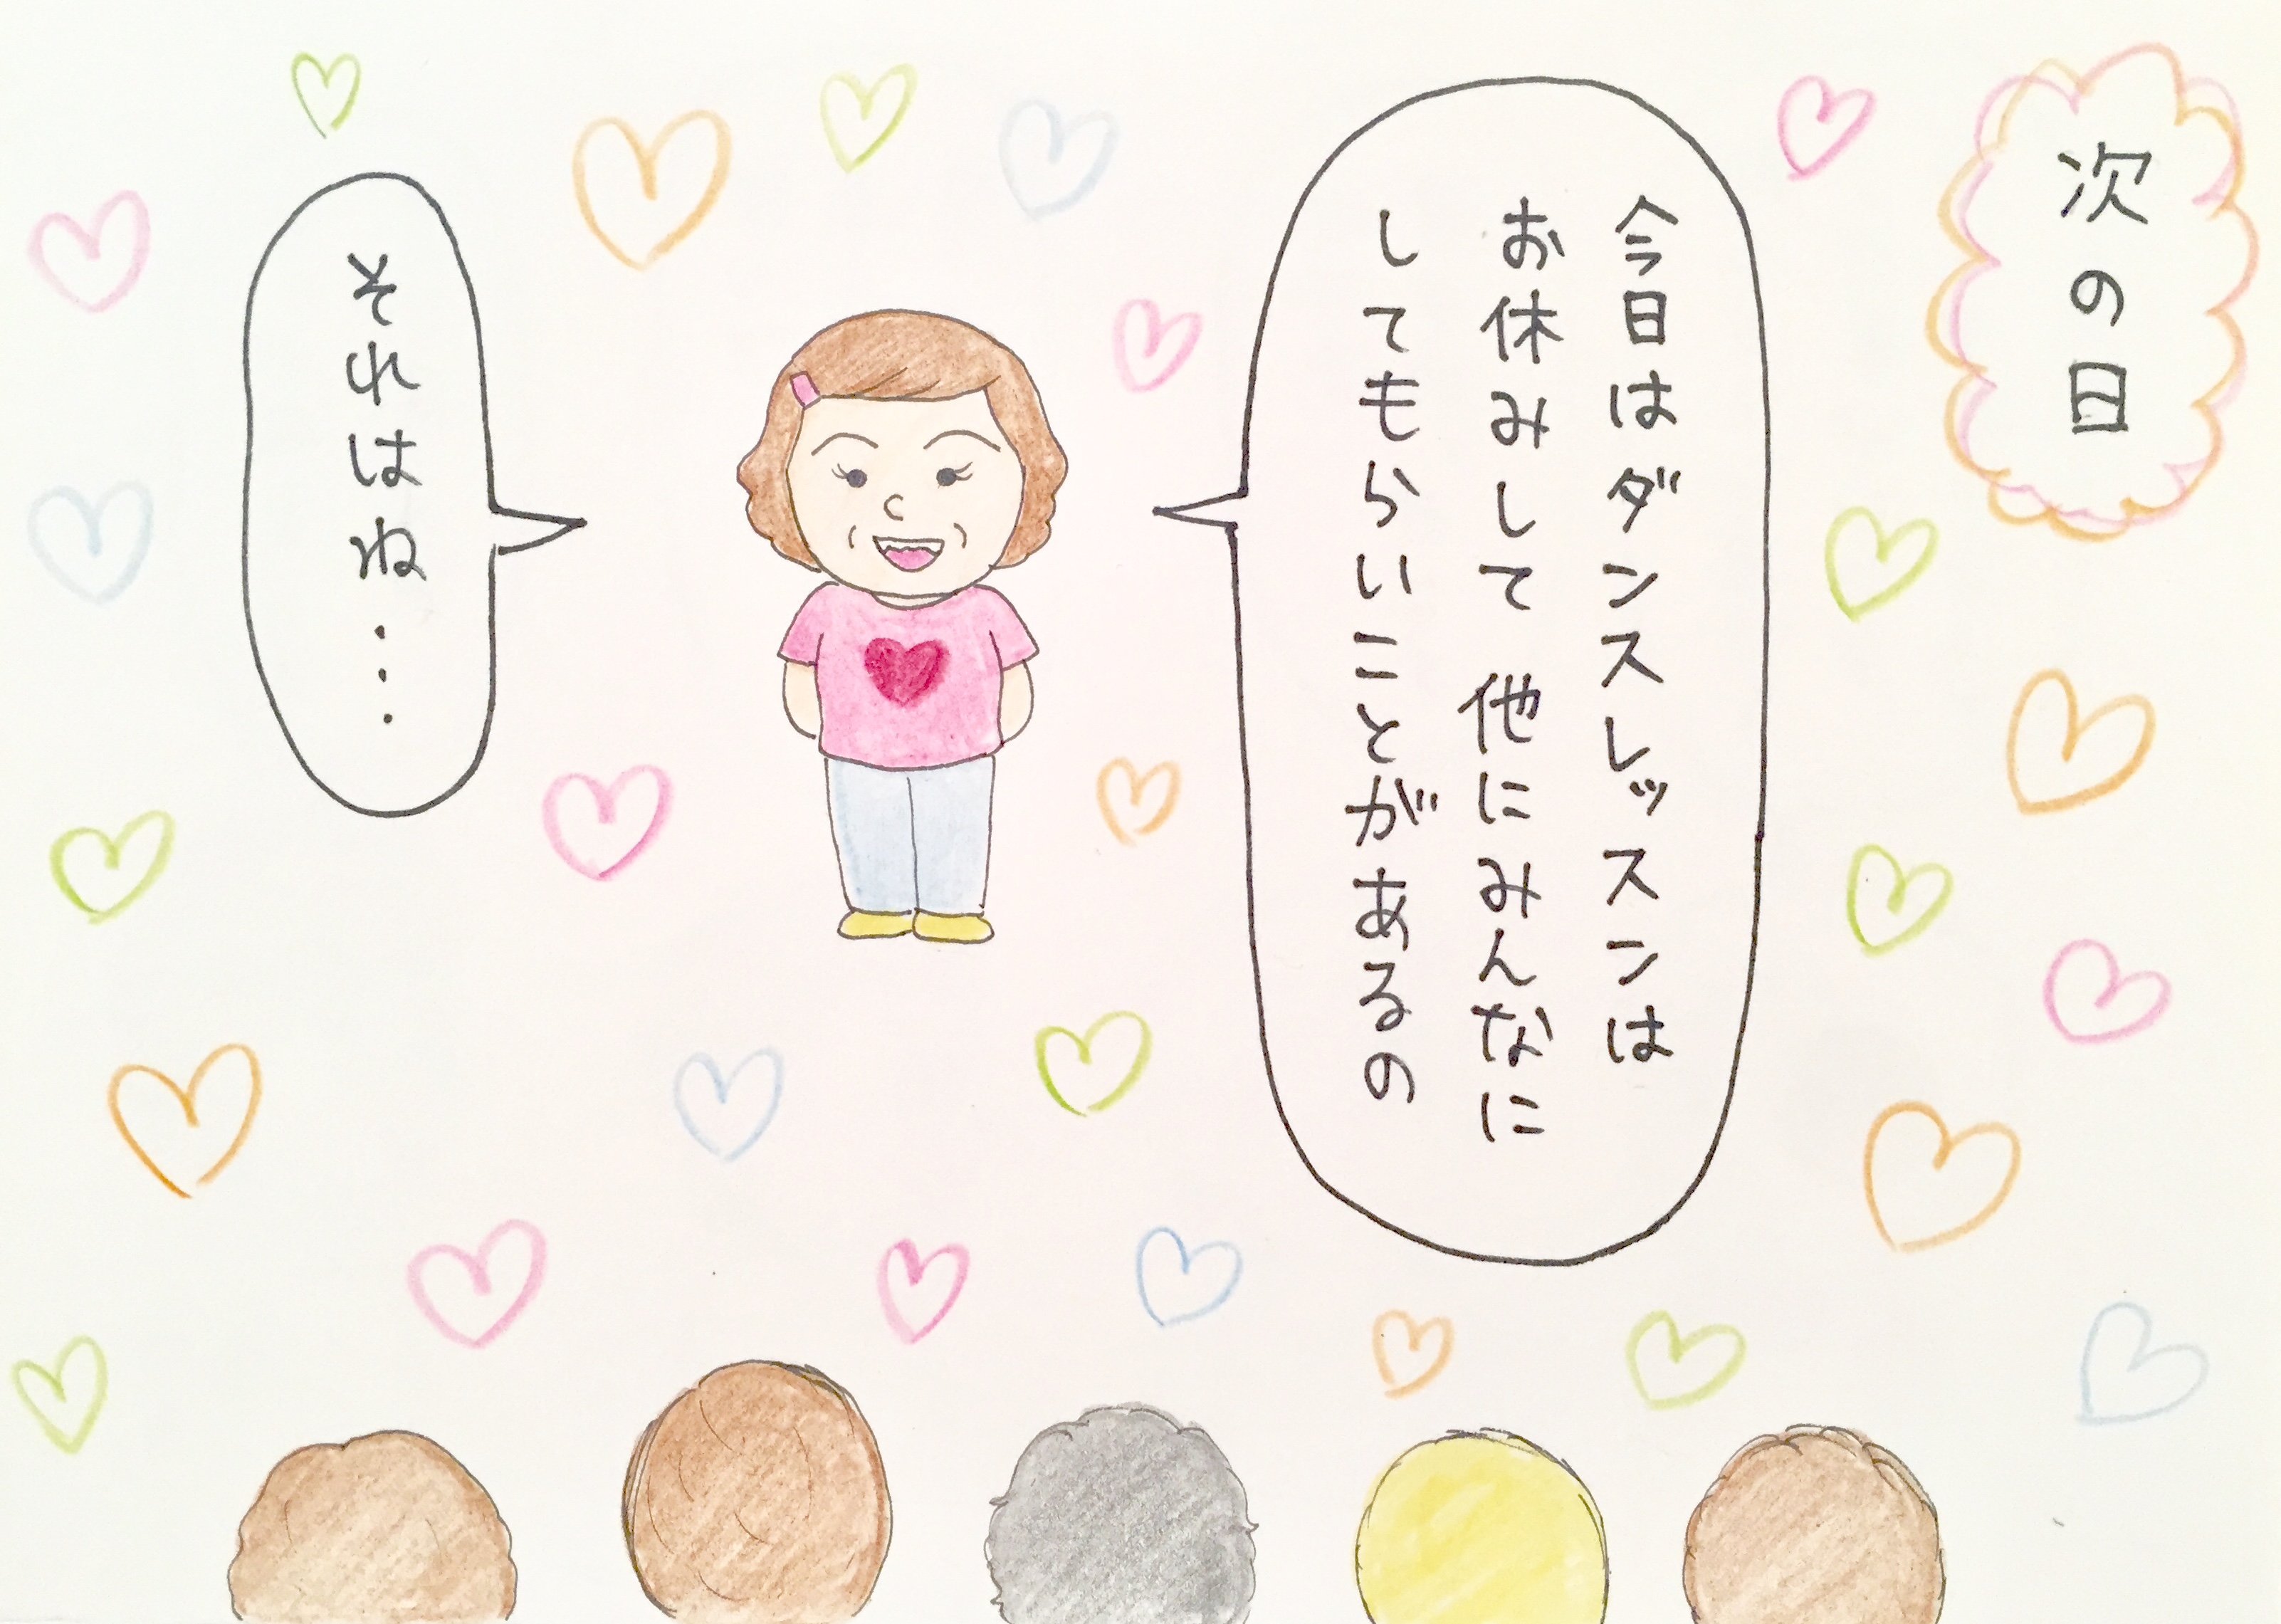 次の日
今日はダンスレッスンは
お休みして 他にみんなに
してもらいことがあるの
それはね・・・